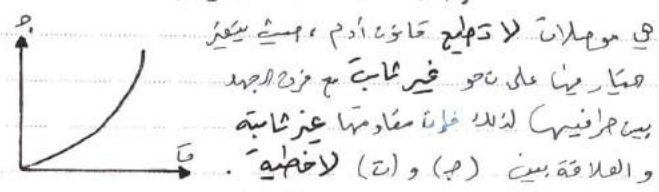 هي موصلات لا تطيع قانون أوم ، حيث يتغير
التيار فيها على نحو غير ثابت مع فرق الجهد
بين طرفيها) لذلك فإن مقاومتها غير ثابتة
و العلاقة بين (جـ) و (ت) لا خطية .
جـ
ت